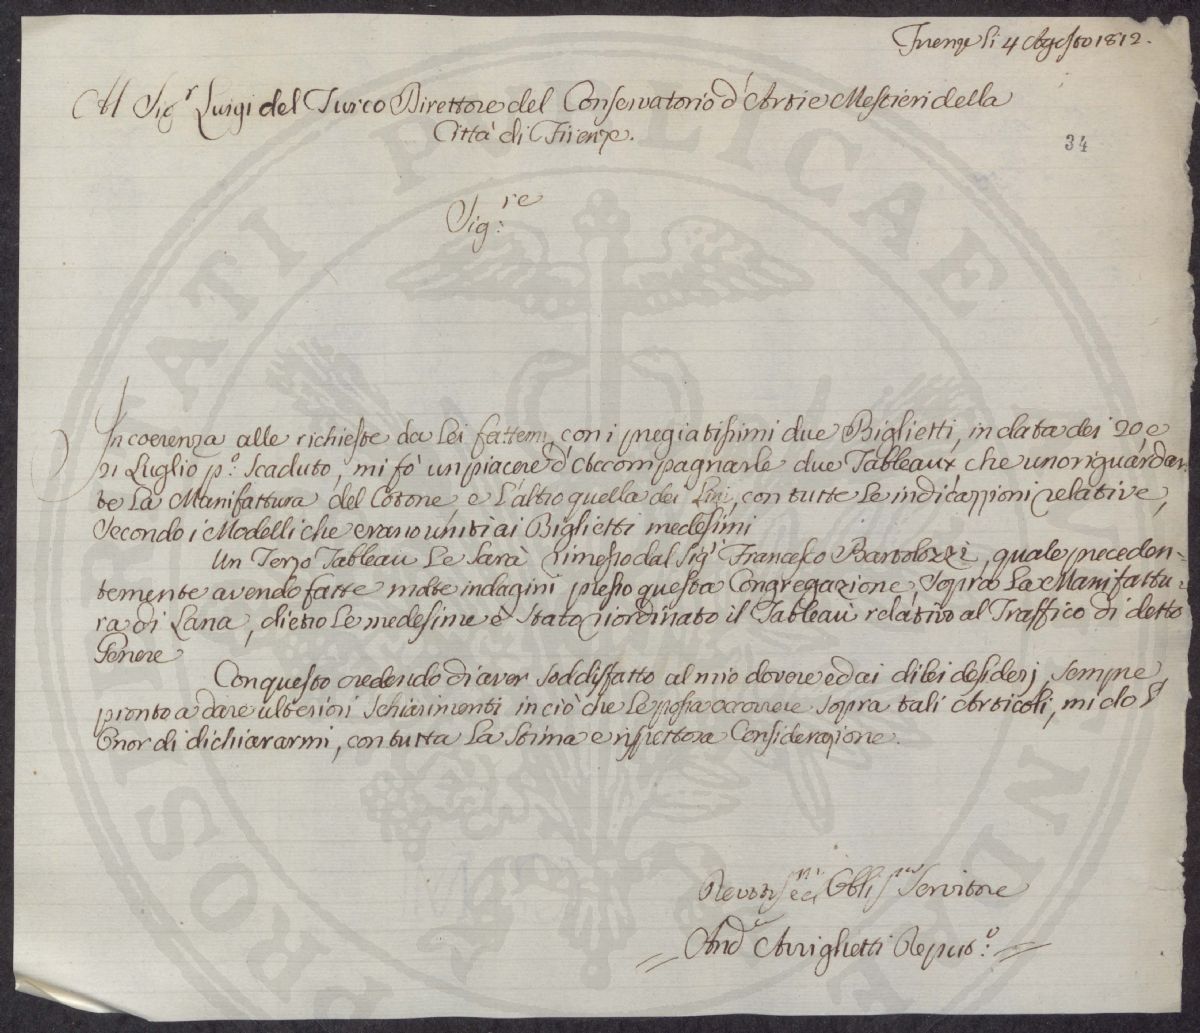 Firenze li 4 Agosto 1812.
Al Sig.r Luigi del Turco Direttore del Conservatorio d'Arti e Mestieri della
Città di Firenze.
34
Sig:re
In coerenza alle richieste da Lei fattemi, con i pregiatissimi due Biglietti, in data dei 20 e
21 Luglio p.o Scaduto, mi fò un piacere d'Accompagnarle due Tableaux che uno riguardan
te La Manifattura del Cotone, e L'altro quella dei Lini, con tutte Le indicazzioni relative,
Secondo i Modelli che erano uniti ai Biglietti medesimi
Un Terzo Tableau Le Sarà rimesso dal Sig.r Francesco Bartolozzi, quale preceden-
temente avendo fatte molte indagini presso questa Congregazione, Sopra La Manifattu-
ra di Lana, dietro Le medesime è Stato riordinato il Tableau relativo al Traffico di detto
Genere
Con questo credendo di aver Soddisfatto al mio dovere ed ai di lei desiderj, Sempre
pronto a dare ulteriori Schiarimenti in ciò che Le possa occorrere Sopra tali Articoli, mi do l'
Onor di dichiararmi, con tutta La Stima e rispettosa Considerazione.
Servitore
And.a Arrighetti
PROSPERITATI PUBLICAE